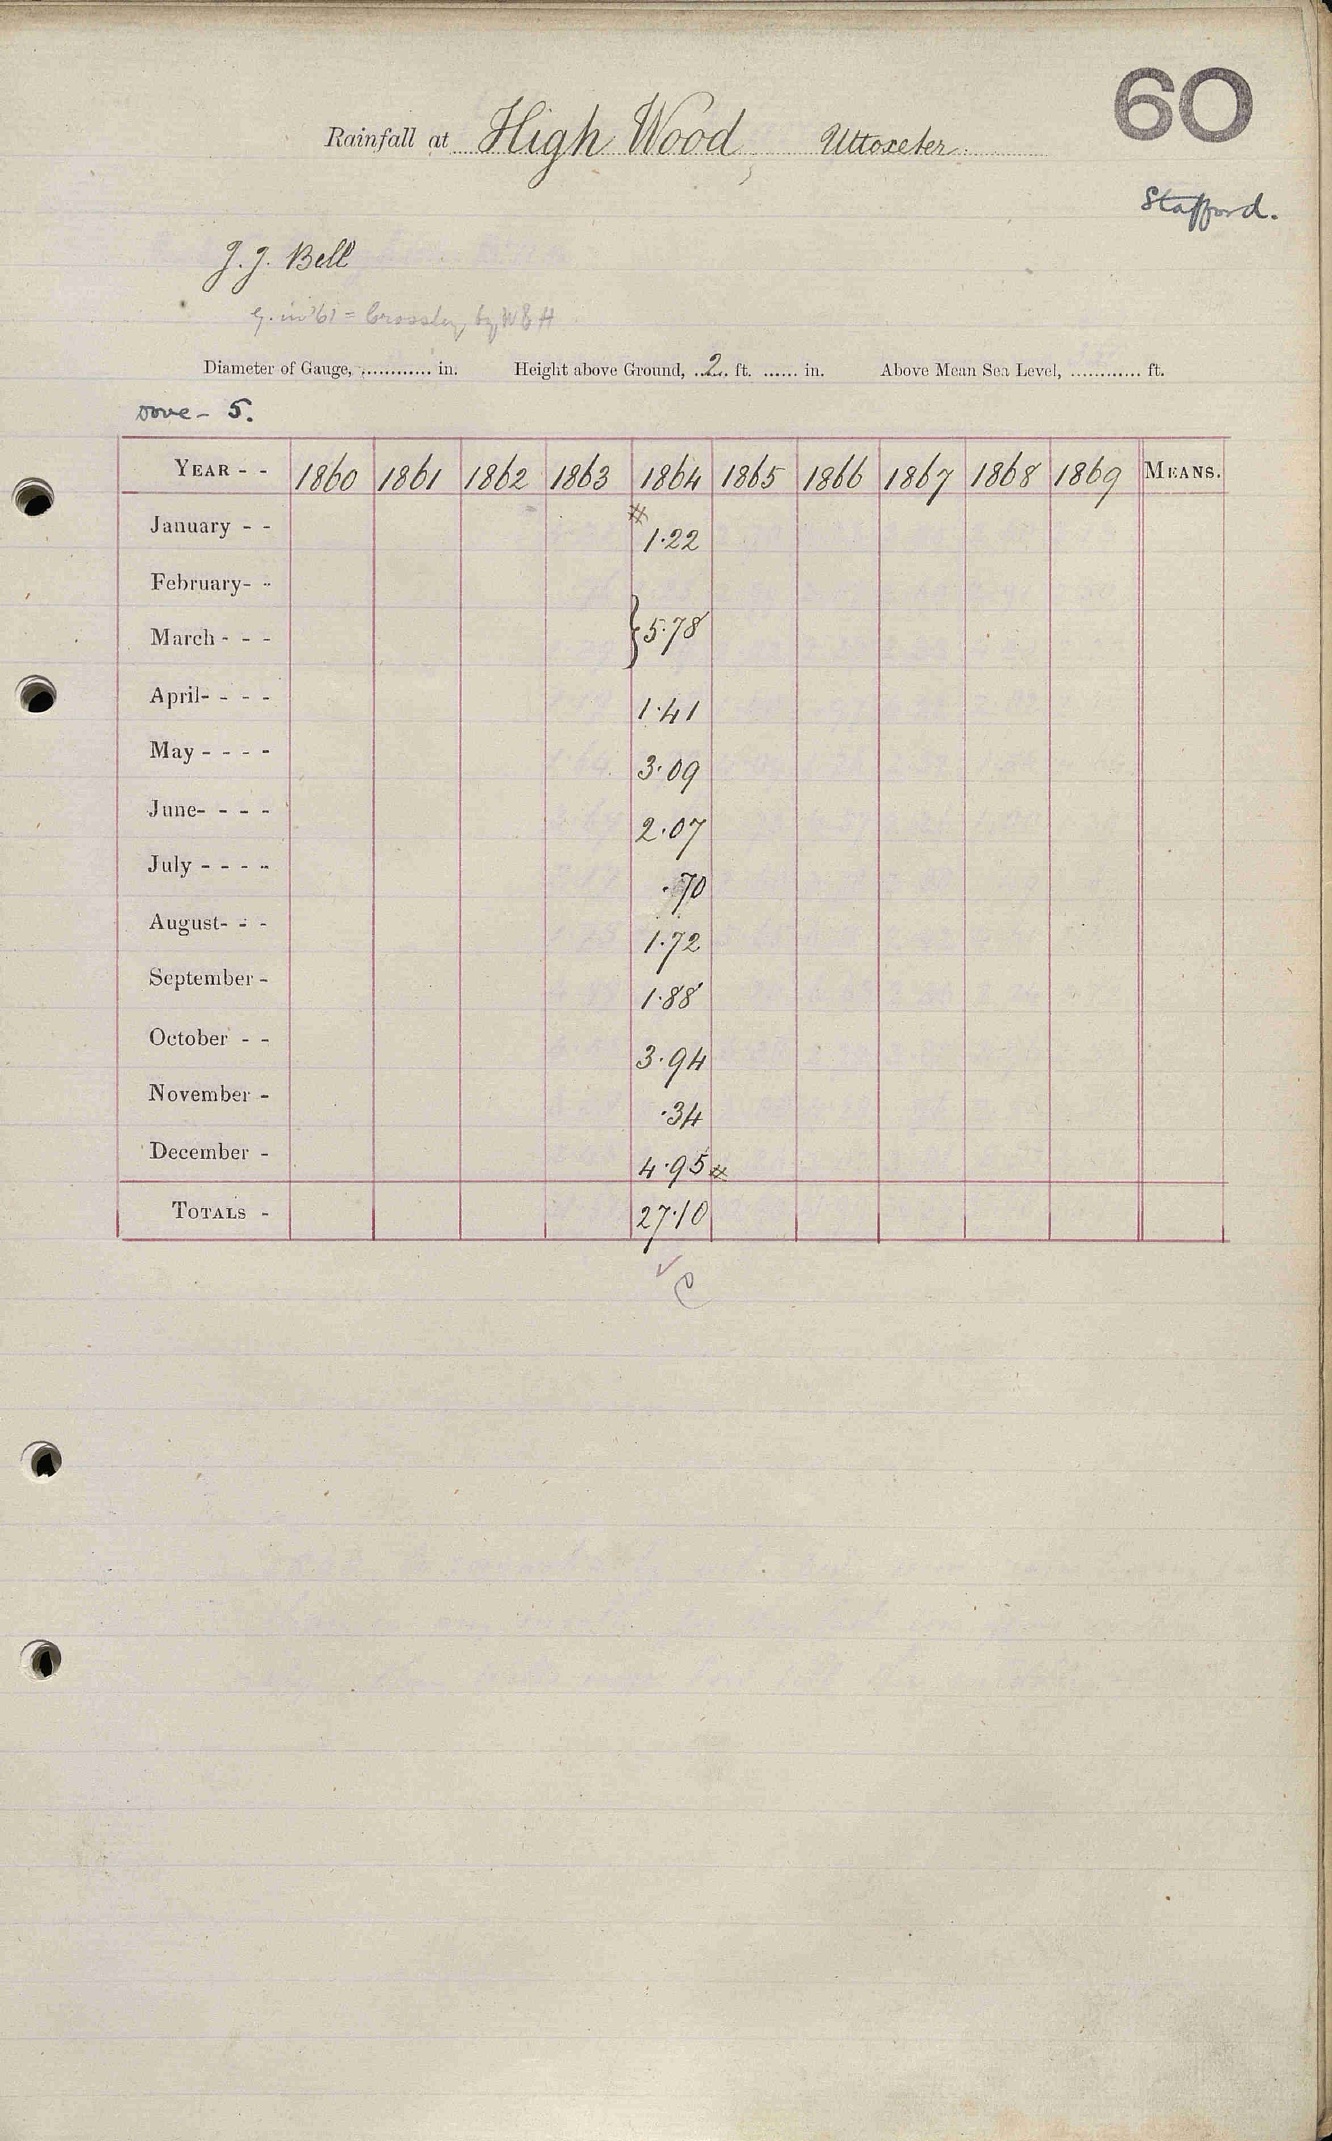 60
Rainfall at High Wood, Uttoxeter.
Stafford.
J. J. Bell
g. in '61 = Crossley, by W & H
Diameter of Gauge, ............ in. Height above Ground, 2 ft. ...... in. Above Mean Sea Level, ............ ft.
Dove - 5.
YEAR - - 1860 1861 1862 1863 1864 1865 1866 1867 1868 1869 MEANS.
January - - # 1.22
February - -
March - - - } 5.78
April - - - - 1.41
May - - - - 3.09
June - - - - 2.07
July - - - - .70
August - - - 1.72
September - 1.88
October - - 3.94
November - .34
December - 4.95 #
TOTALS - 27.10
✓
C